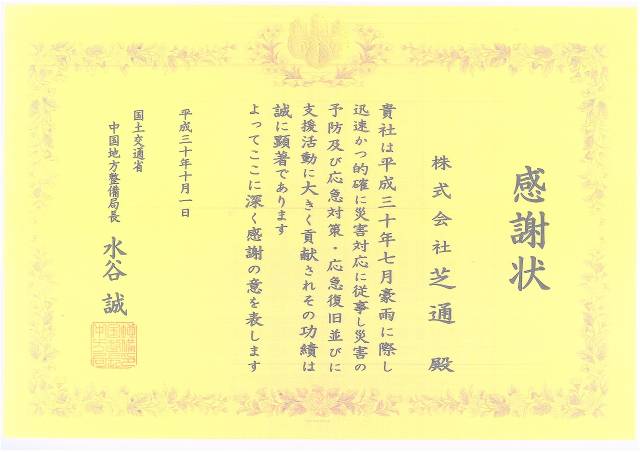 感謝状
株式会社芝通 殿
貴社は平成三十年七月豪雨に際し
迅速かつ的確に災害対応に従事し災害の
予防及び応急対策・応急復旧並びに
支援活動に大きく貢献されその功績は
誠に顕著であります
よってここに深く感謝の意を表します
平成三十年十月一日
国土交通省
中国地方整備局長
水谷 誠